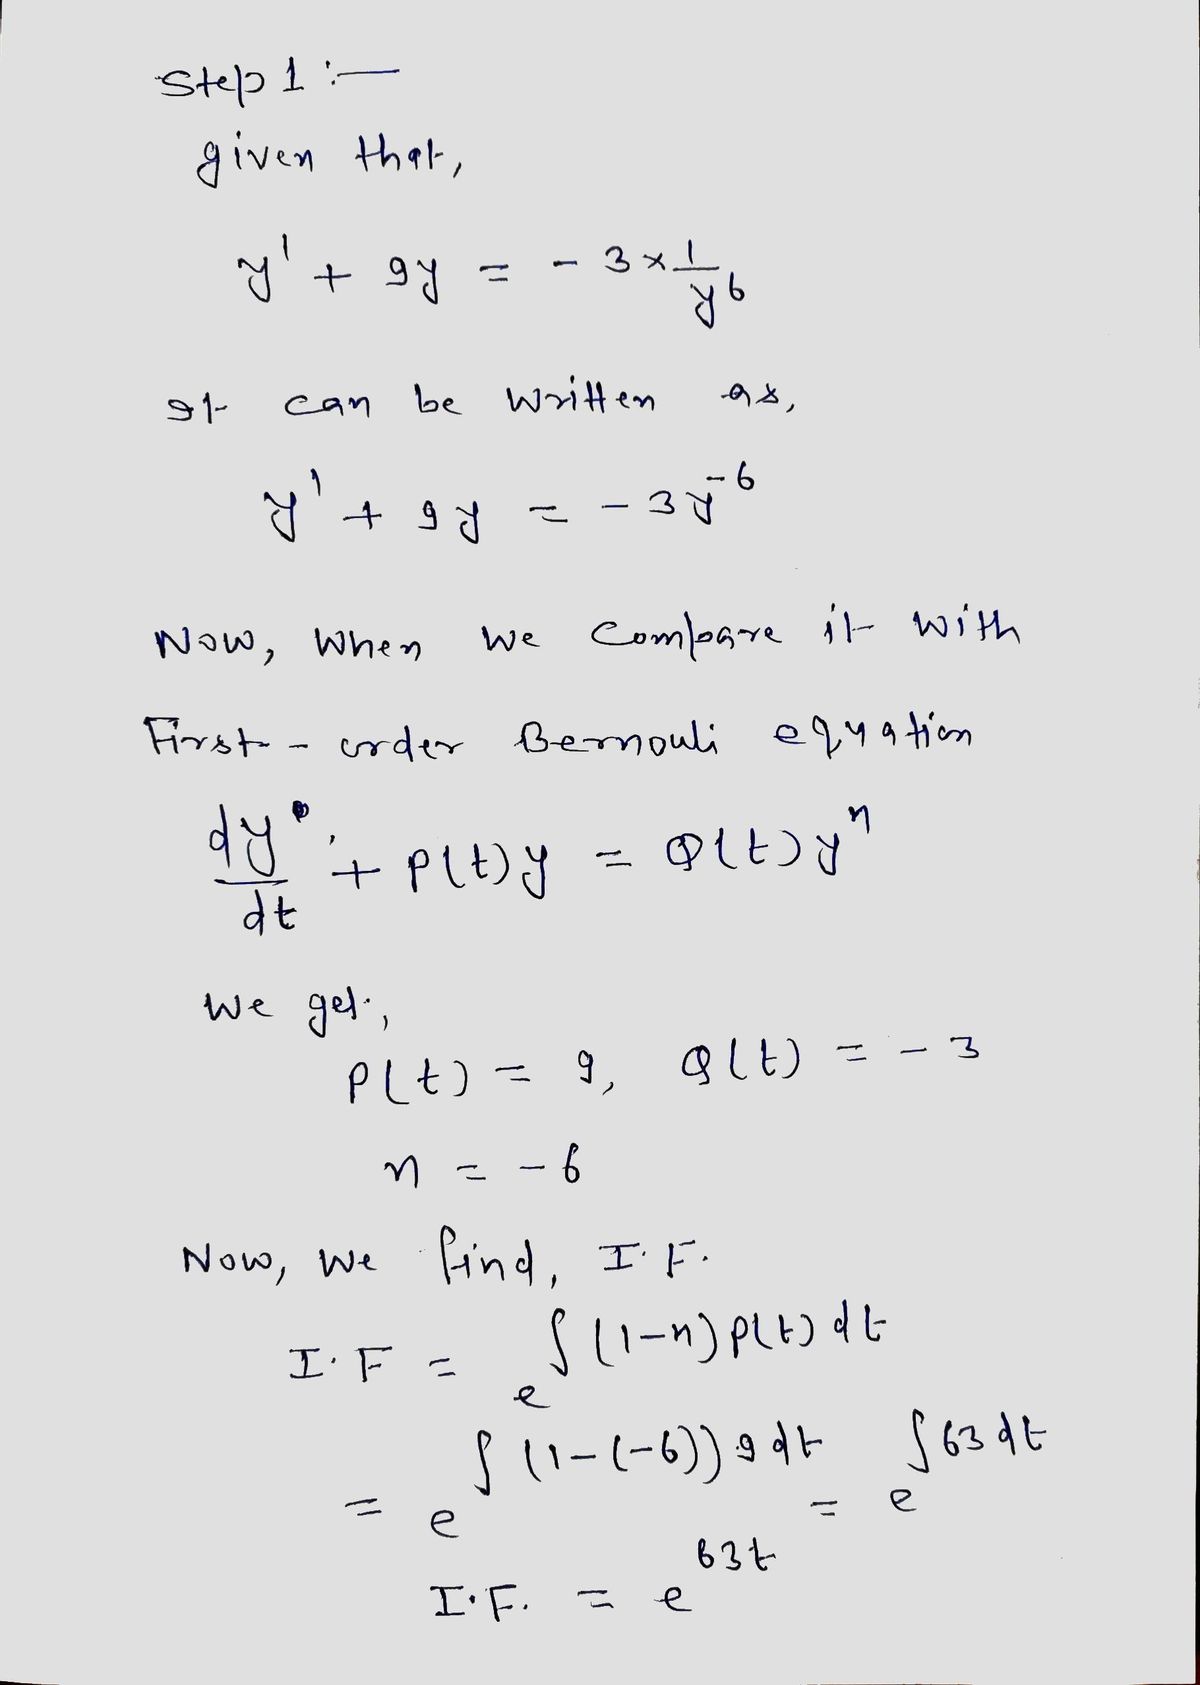 Step 1 :—
given that,
y' + 9y = - 3 × 1/y^6
It can be written as,
y' + 9y = - 3y^-6
Now, when we compare it with
First - order Bernouli equation
dy/dt + P(t)y = Q(t)y^n
we get,
P(t) = 9, Q(t) = - 3
n = - 6
Now, we find, I.F.
I.F = e^∫(1-n)P(t)dt
= e^∫(1-(-6)) 9 dt = e^∫63dt
I.F. = e^63t